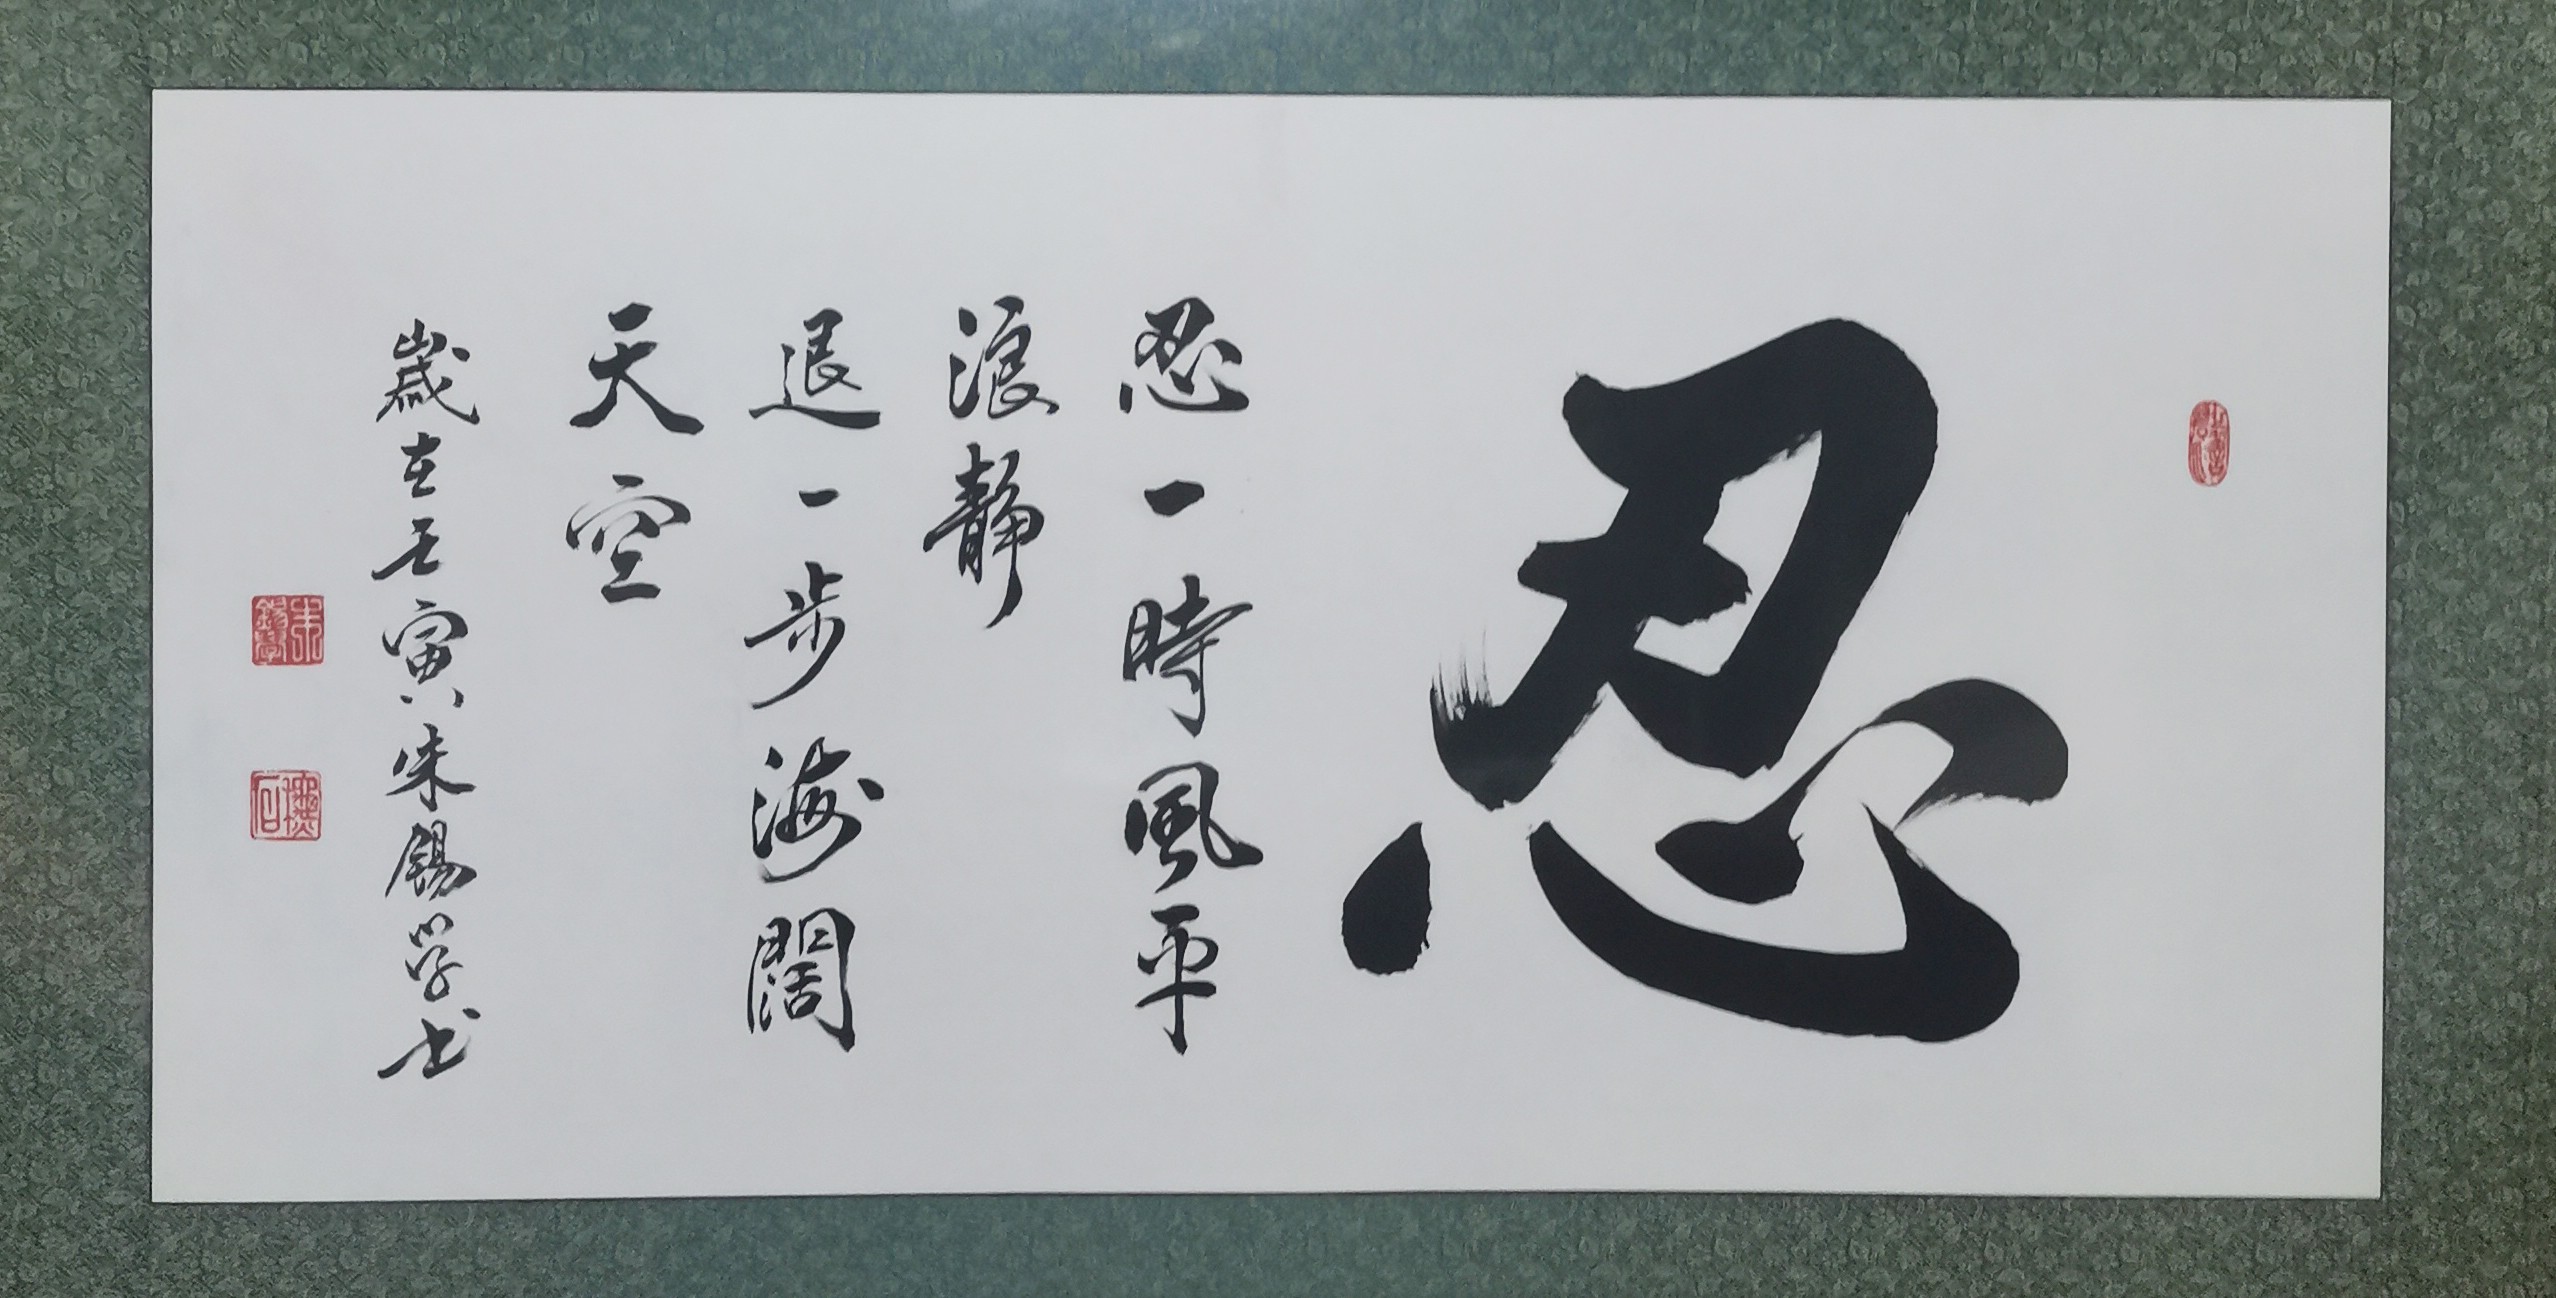 忍
忍一時風平
浪靜
退一步海闊
天空
歲在壬寅朱錫学书
朱錫學